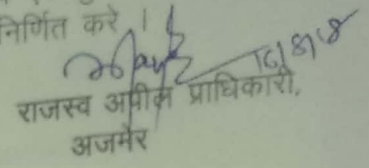 निर्णित करे ।
16/8/18
राजस्व अपील प्राधिकारी,
अजमेर